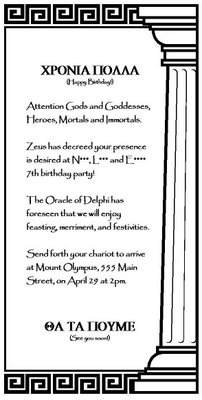 ΧΡΟΝΙΑ ΠΟΛΛΑ
(Happy Birthday!)
Attention Gods and Goddesses,
Heroes, Mortals and Immortals.
Zeus has decreed your presence
is desired at N***, L*** and E****
7th birthday party!
The Oracle of Delphi has
foreseen that we will enjoy
feasting, merriment, and festivities.
Send forth your chariot to arrive
at Mount Olympus, 555 Main
Street, on April 29 at 2pm.
ΘΑ ΤΑ ΠΟΥΜΕ
(See you soon!)